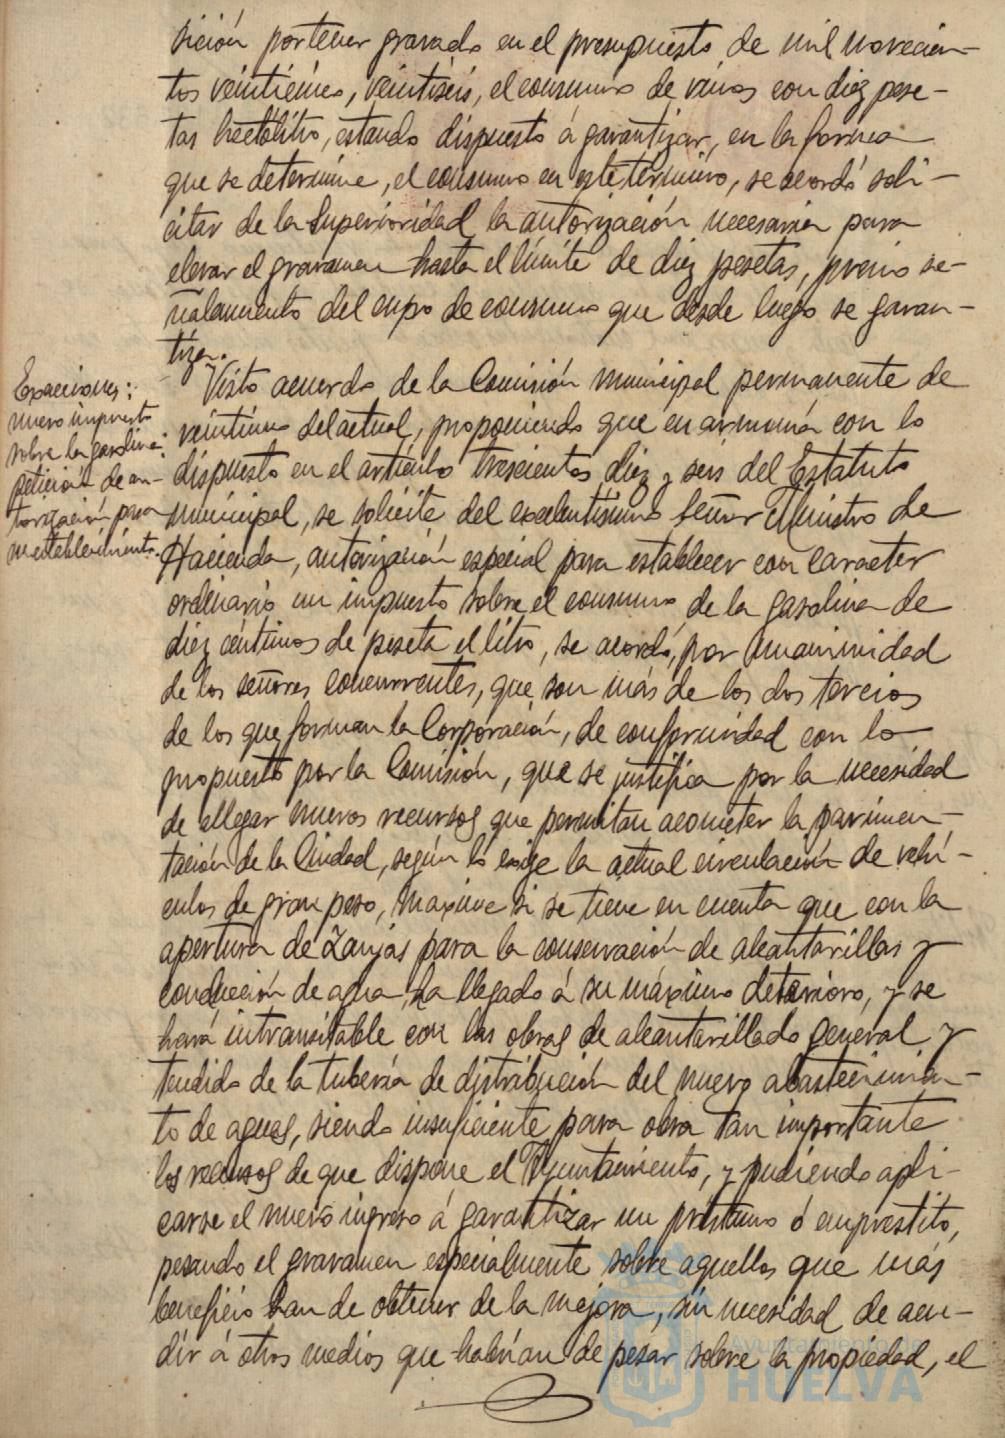 sición por tener gravado en el presupuesto de mil novecien-
tos veinticinco, veintiseis, el consumo de vinos con diez pese-
tas hectólitro, estando dispuesto á garantizar, en la forma
que se determine, el consumo en este término, se acordó soli-
citar de la Superioridad la autorización necesaria para
elevar el gravamen hasta el límite de diez pesetas, previo se-
ñalamiento del cupo de consumo que desde luego se garan-
tiza.
Exacciones:
nuevo impuesto
sobre la gasolina:
petición de au-
torización para
su establecimiento.
Visto acuerdo de la Comisión municipal permanente de
veintiuno del actual, proponiendo que en armonía con lo
dispuesto en el artículo trescientos diez y seis del Estatuto
municipal, se solicite del excelentísimo señor Ministro de
Hacienda, autorización especial para establecer con caracter
ordinario un impuesto sobre el consumo de la gasolina de
diez céntimos de peseta el litro, se acordó, por unanimidad
de los señores concurrentes, que son más de los dos tercios
de los que forman la Corporación, de conformidad con lo
propuesto por la Comisión, que se justifica por la necesidad
de allegar nuevos recursos que permitan acometer la pavimen-
tación de la Ciudad, según lo exige la actual circulación de vehí-
culos de gran peso, maxime si se tiene en cuenta que con la
apertura de zanjas para la conservación de alcantarillas y
conducción de agua, ha llegado á su máximo deterioro, y se
hará intransitable con las obras de alcantarillado general y
tendido de la tubería de distribución del nuevo abastecimien-
to de aguas, siendo insuficiente para obra tan importante
los recursos de que dispone el Ayuntamiento, y pudiendo apli-
carse el nuevo ingreso á garantizar un préstamo ó emprestito,
pesando el gravamen especialmente sobre aquellos que más
beneficio han de obtener de la mejora, sin necesidad de acu-
dir á otros medios que habrían de pesar sobre la propiedad, el
Ayuntamiento de
HUELVA